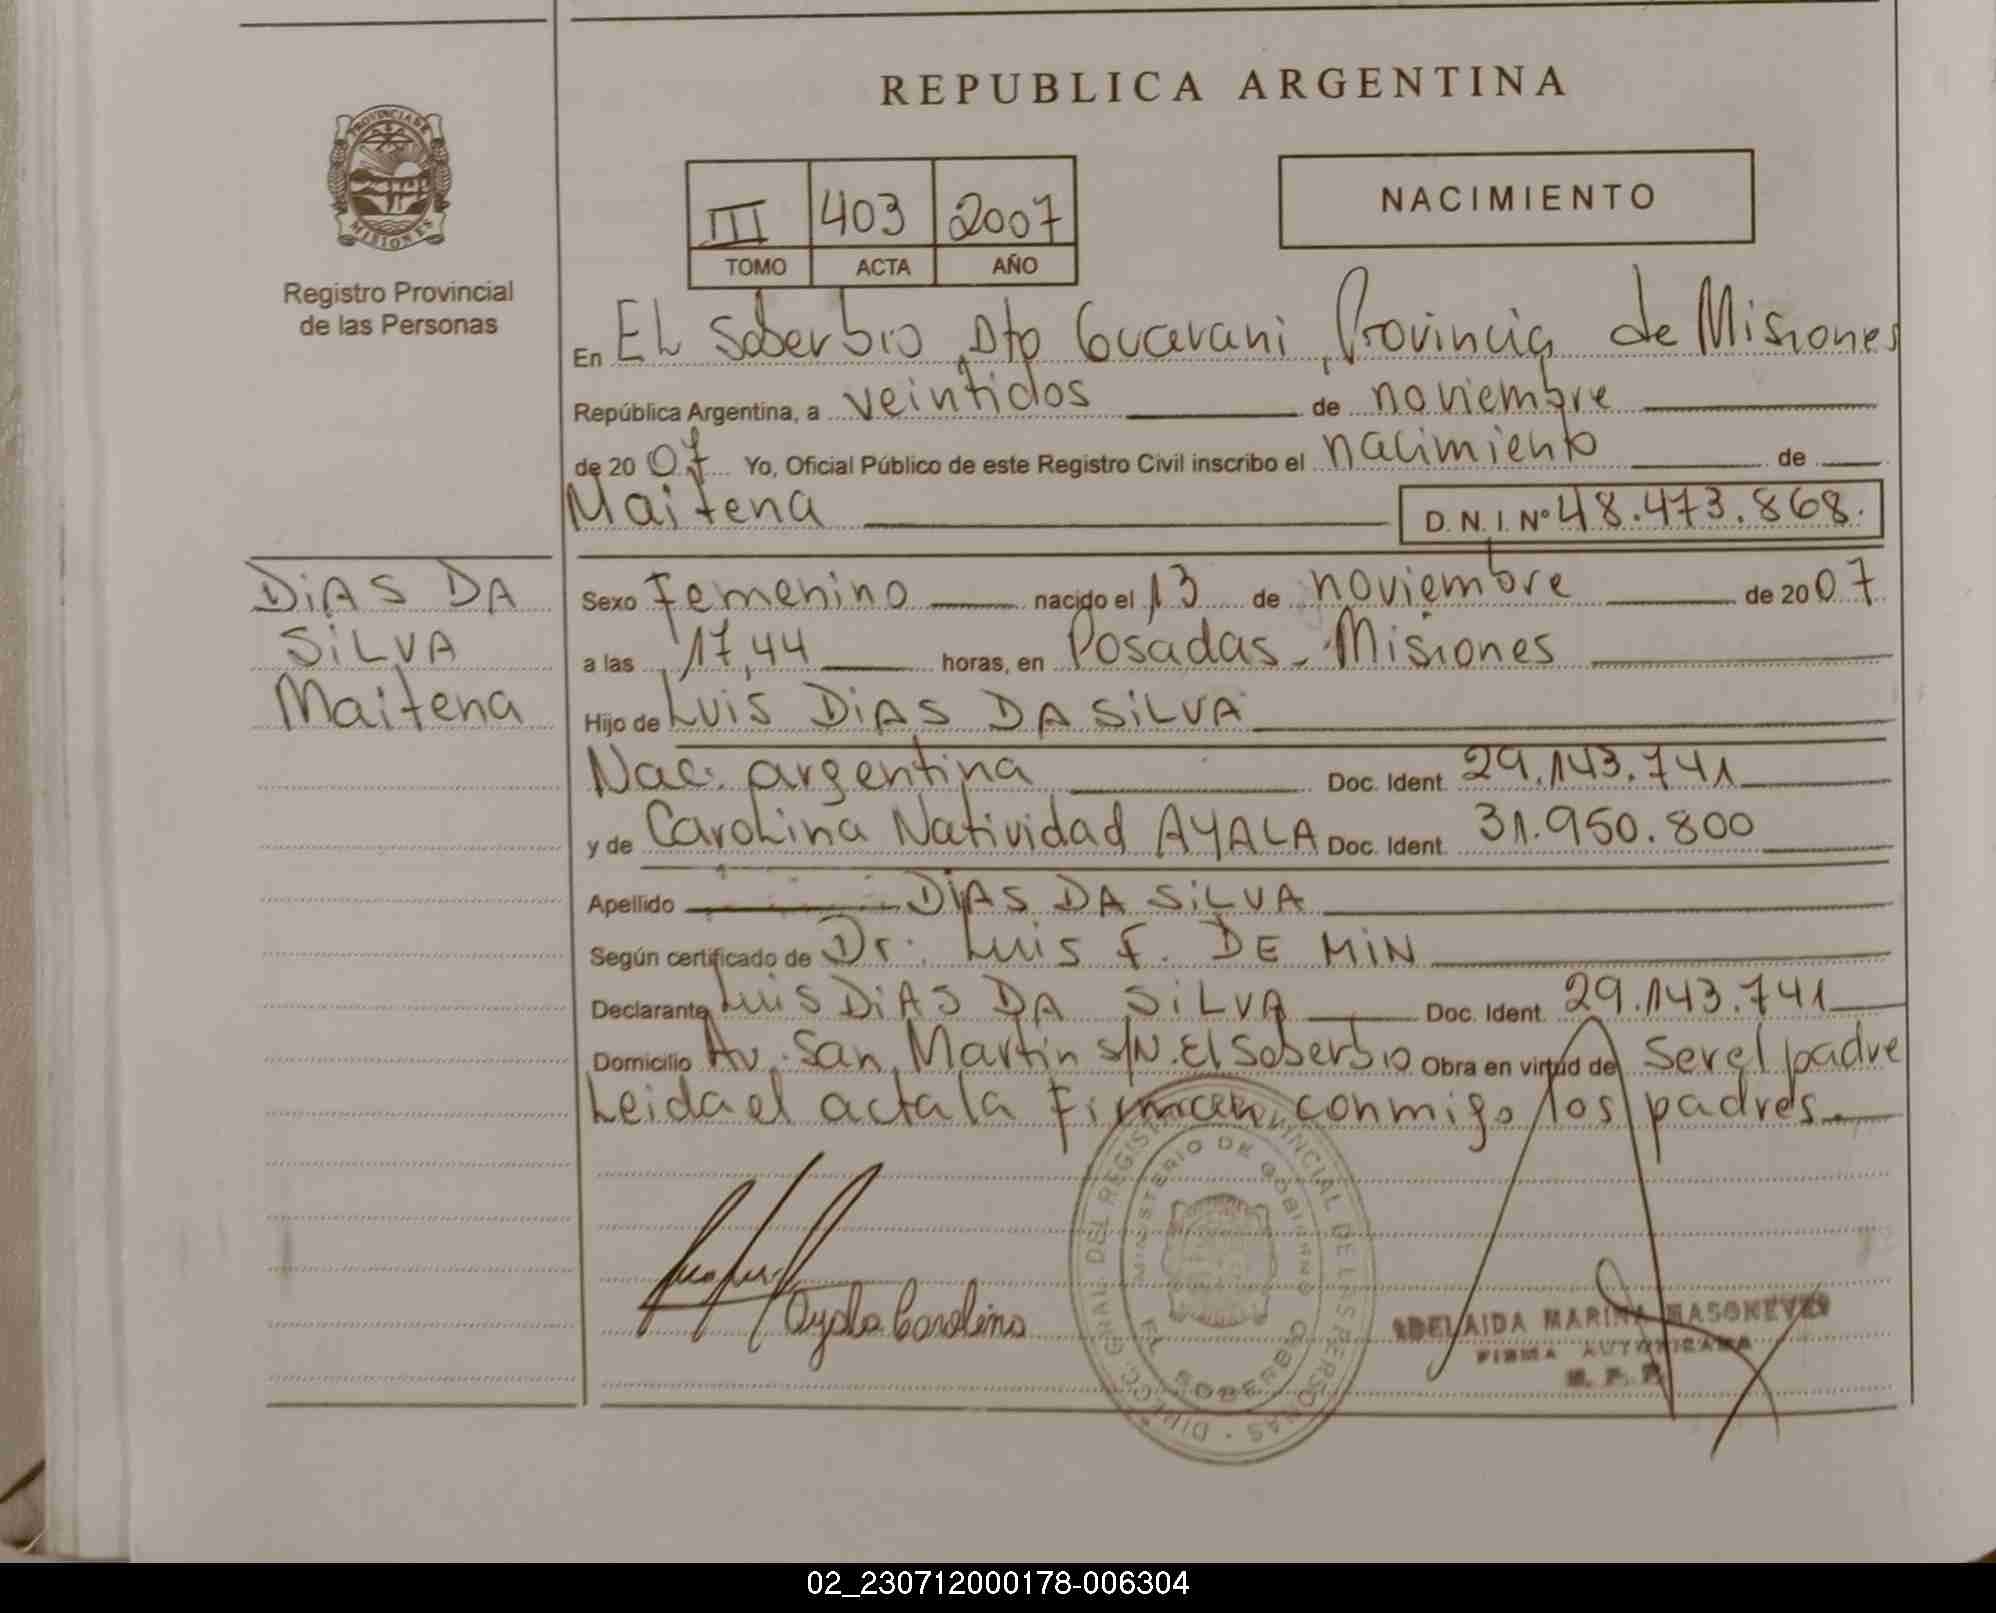 REPUBLICA ARGENTINA
PROVINCIA DE
MISIONES
Registro Provincial
de las Personas
III 403 2007
TOMO ACTA AÑO
NACIMIENTO
En EL Soberbio, Dto Guarani, Provincia de Misiones
República Argentina, a veintidos de noviembre
de 20 07 Yo, Oficial Público de este Registro Civil inscribo el nacimiento de
Maitena D. N. I. Nº 48.473.868.
DiAS DA
SiLVA
Maitena
Sexo Femenino nacido el 13 de noviembre de 20 07
a las 17,44 horas, en Posadas - Misiones
Hijo de Luis DiAS DA SiLVA
Nac. argentina Doc. Ident. 29.143.741
y de Carolina Natividad AYALA Doc. Ident. 31.950.800
Apellido DiAS DA SiLVA
Según certificado de Dr. Luis F. DE MIN
Declarante Luis DiAS DA SiLVA Doc. Ident. 29.143.741
Domicilio Av. San Martin s/N. El Soberbio Obra en virtud de ser el padre
Leida el acta la firman conmigo los padres.
Ayala Carolina
DIRECC. GRAL. DEL REGISTRO PROVINCIAL DE LAS PERSONAS
MINISTERIO DE GOBIERNO
EL SOBERBIO
ADELAIDA MARINA
FIRMA AUTORIZADA
02_230712000178-006304